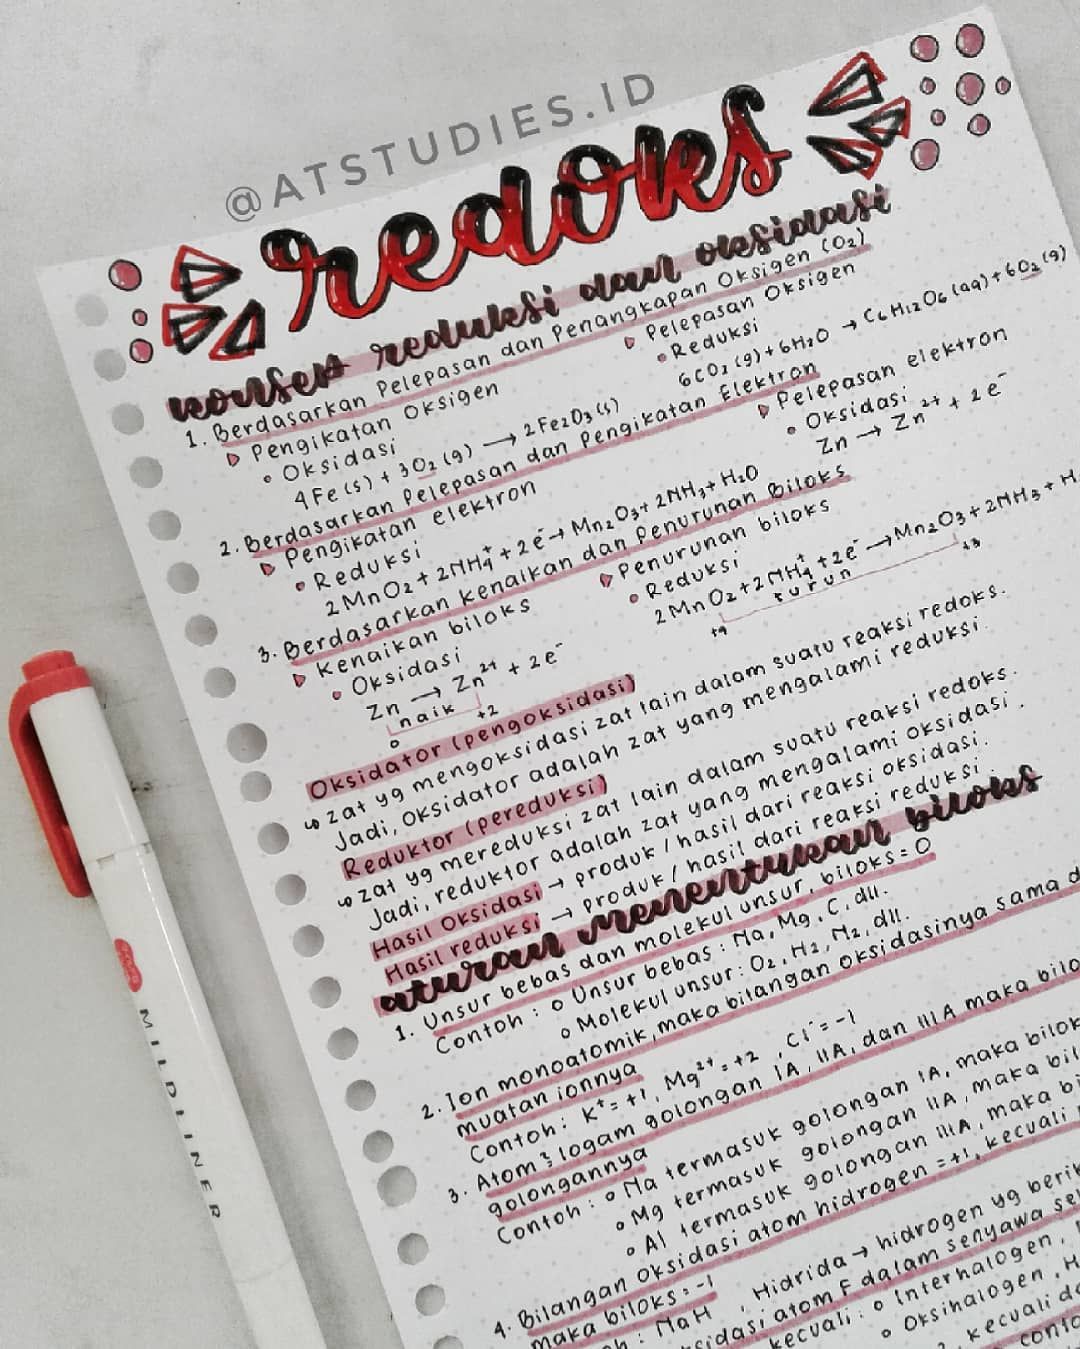 @ATSTUDIES.ID
redoks
konsep reduksi dan oksidasi
1. Berdasarkan Pelepasan dan Penangkapan Oksigen (O₂)
Pengikatan Oksigen
• Oksidasi
4Fe (s) + 3O₂ (g) → 2Fe₂O₃ (s)
Pelepasan Oksigen
• Reduksi
6CO₂ (g) + 6H₂O → C₆H₁₂O₆ (aq) + 6O₂ (g)
2. Berdasarkan Pelepasan dan Pengikatan Elektron
Pengikatan elektron
• Reduksi
2MnO₂ + 2NH₄⁺ + 2e⁻ → Mn₂O₃ + 2NH₃ + H₂O
Pelepasan elektron
• Oksidasi
Zn → Zn²⁺ + 2e⁻
3. Berdasarkan Kenaikan dan Penurunan Biloks
Kenaikan biloks
• Oksidasi
Zn → Zn²⁺ + 2e⁻
naik
0 +2
Penurunan biloks
• Reduksi
2MnO₂ + 2NH₄⁺ + 2e⁻ → Mn₂O₃ + 2NH₃ + H
turun
+4 +3
Oksidator (pengoksidasi)
↪ zat yg mengoksidasi zat lain dalam suatu reaksi redoks.
Jadi, oksidator adalah zat yang mengalami reduksi.
Reduktor (pereduksi)
↪ zat yg mereduksi zat lain dalam suatu reaksi redoks.
Jadi, reduktor adalah zat yang mengalami oksidasi.
Hasil Oksidasi → produk / hasil dari reaksi oksidasi.
Hasil reduksi → produk / hasil dari reaksi reduksi.
aturan menentukan biloks
1. Unsur bebas dan molekul unsur, biloks = 0
Contoh : o Unsur bebas : Na, Mg, C, dll.
o Molekul unsur : O₂, H₂, N₂, dll.
2. Ion monoatomik, maka bilangan oksidasinya sama d
muatan ionnya
Contoh : K⁺ = +1, Mg²⁺ = +2, Cl⁻ = -1
3. Atom² logam golongan IA, IIA, dan IIIA maka bilo
golongannya
Contoh : o Na termasuk golongan IA, maka bilok
o Mg termasuk golongan IIA, maka bil
o Al termasuk golongan IIIA, maka bi
4. Bilangan oksidasi atom hidrogen = +1, kecuali
maka biloks = -1
NaH, Hidrida → hidrogen yg berik
sidasi atom F dalam senyawa se
kecuali : o Interhalogen,
o Oksihalogen, H
kecuali da
conto
MILDLINER